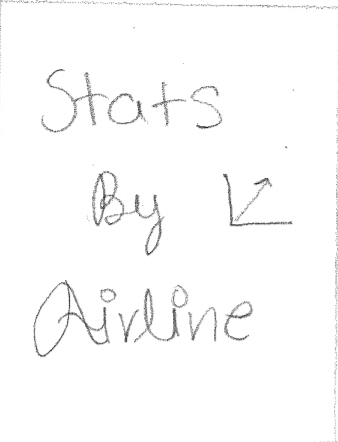 Stats
By
Airline